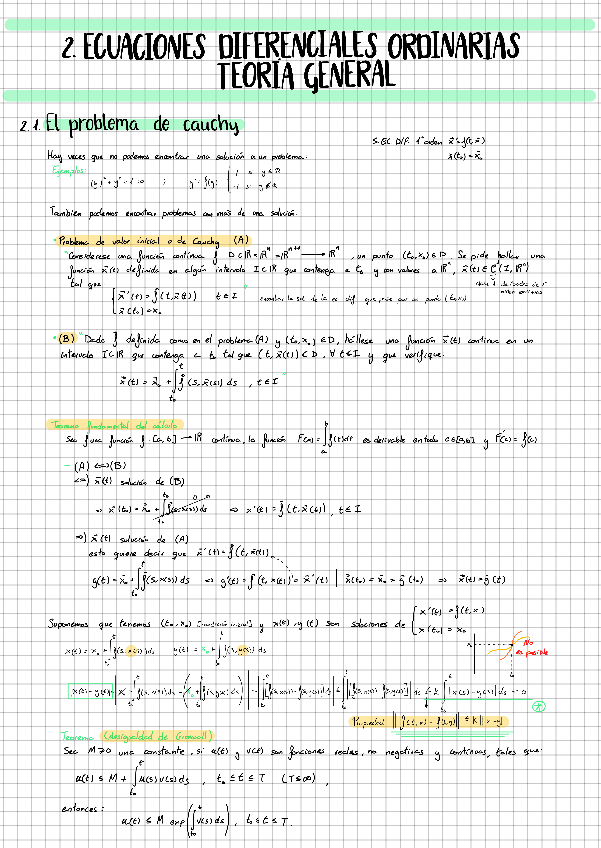 2. ECUACIONES DIFERENCIALES ORDINARIAS
TEORÍA GENERAL
2.1. El problema de cauchy
S. EC DIF. 1er orden x̄' = f(t, x̄)
x(t₀) = x̄₀
Hay veces que no podemos encontrar una solución a un problema.
Ejemplos:
También podemos encontrar problemas con más de una solución.
• Problema de valor inicial o de Cauchy (A)
"Considérese una función continua f: D ⊂ ℝ × ℝⁿ = ℝⁿ⁺¹ → ℝⁿ, un punto (t₀, x₀) ∈ D. Se pide hallar una
función x̄(t) definida en algún intervalo I ⊂ ℝ que contenga a t₀ y con valores a ℝⁿ, x̄(t) ∈ C¹(I, ℝⁿ)
tal que
x̄'(t) = f(t, x̄(t)) t ∈ I
x̄(t₀) = x₀
• (B) "Dado f definida como en el problema (A) y (t₀, x₀) ∈ D, hállese una función x̄(t) continua en un
intervalo I ⊂ ℝ que contenga a t₀ tal que (t, x̄(t)) ⊂ D, ∀ t ∈ I y que verifique:
x̄(t) = x̄₀ + ∫_{t₀}^{t} f(s, x̄(s)) ds, t ∈ I"
Teorema fundamental del cálculo
Sea f una función f: [a, b] → ℝ continua, la función F(x) = ∫ f(t)dt es derivable en todo c ∈ [a, b] y F'(c) = f(c)
- (A) ⟺ (B)
⇐) x̄(t) solución de (B)
⇒ x̄(t₀) = x̄₀ + ∫_{t₀}^{t₀} f(s, x(s)) ds ⇒ x'(t) = f(t, x(t)), t ∈ I
⇒) x̄(t) solución de (A)
esto quiere decir que x̄'(t) = f(t, x(t))
g(t) = x̄₀ + ∫_{t₀}^{t} f(s, x(s)) ds ⇒ g'(t) = f(t, x(t)) = x̄'(t) | x̄(t₀) = x̄₀ = ḡ(t₀) ⇒ x̄(t) = ḡ(t)
Suponemos que tenemos (t₀, x₀) [condición inicial] y x(t), y(t) son soluciones de
x'(t) = f(t, x)
x'(t₀) = x₀
No
es posible
x(t) = x₀ + ∫_{t₀}^{t} f(s, x(s)) ds y(t) = x₀ + ∫_{t₀}^{t} f(s, y(s)) ds
Propiedad ‖f(t, x) - f(t, y)‖ ≤ k‖x - y‖
Teorema (desigualdad de Gronwall)
Sea M ≥ 0 una constante, si u(t) y v(t) son funciones reales, no negativas y continuas, tales que:
u(t) ≤ M + ∫_{t₀}^{t} u(s) v(s) ds, t₀ ≤ t ≤ T (T ≤ ∞),
entonces:
u(t) ≤ M exp(∫_{t₀}^{t} v(s) ds), t₀ ≤ t ≤ T.